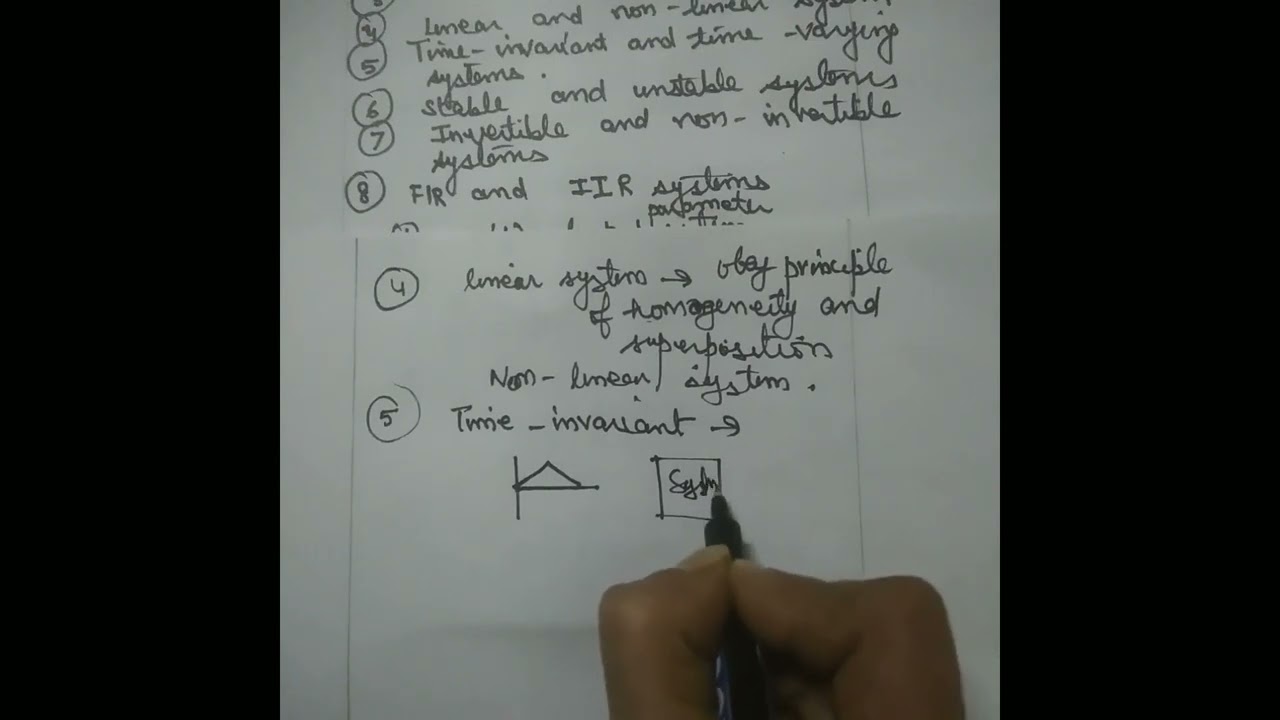 ④ linear and non-linear system
⑤ Time-invariant and time-varying
systems.
⑥ stable and unstable systems
⑦ Invertible and non-invertible
systems
⑧ FIR and IIR systems
parameter
④ linear system → obey principle
of homogeneity and
superposition
Non-linear system.
⑤ Time-invariant →
System